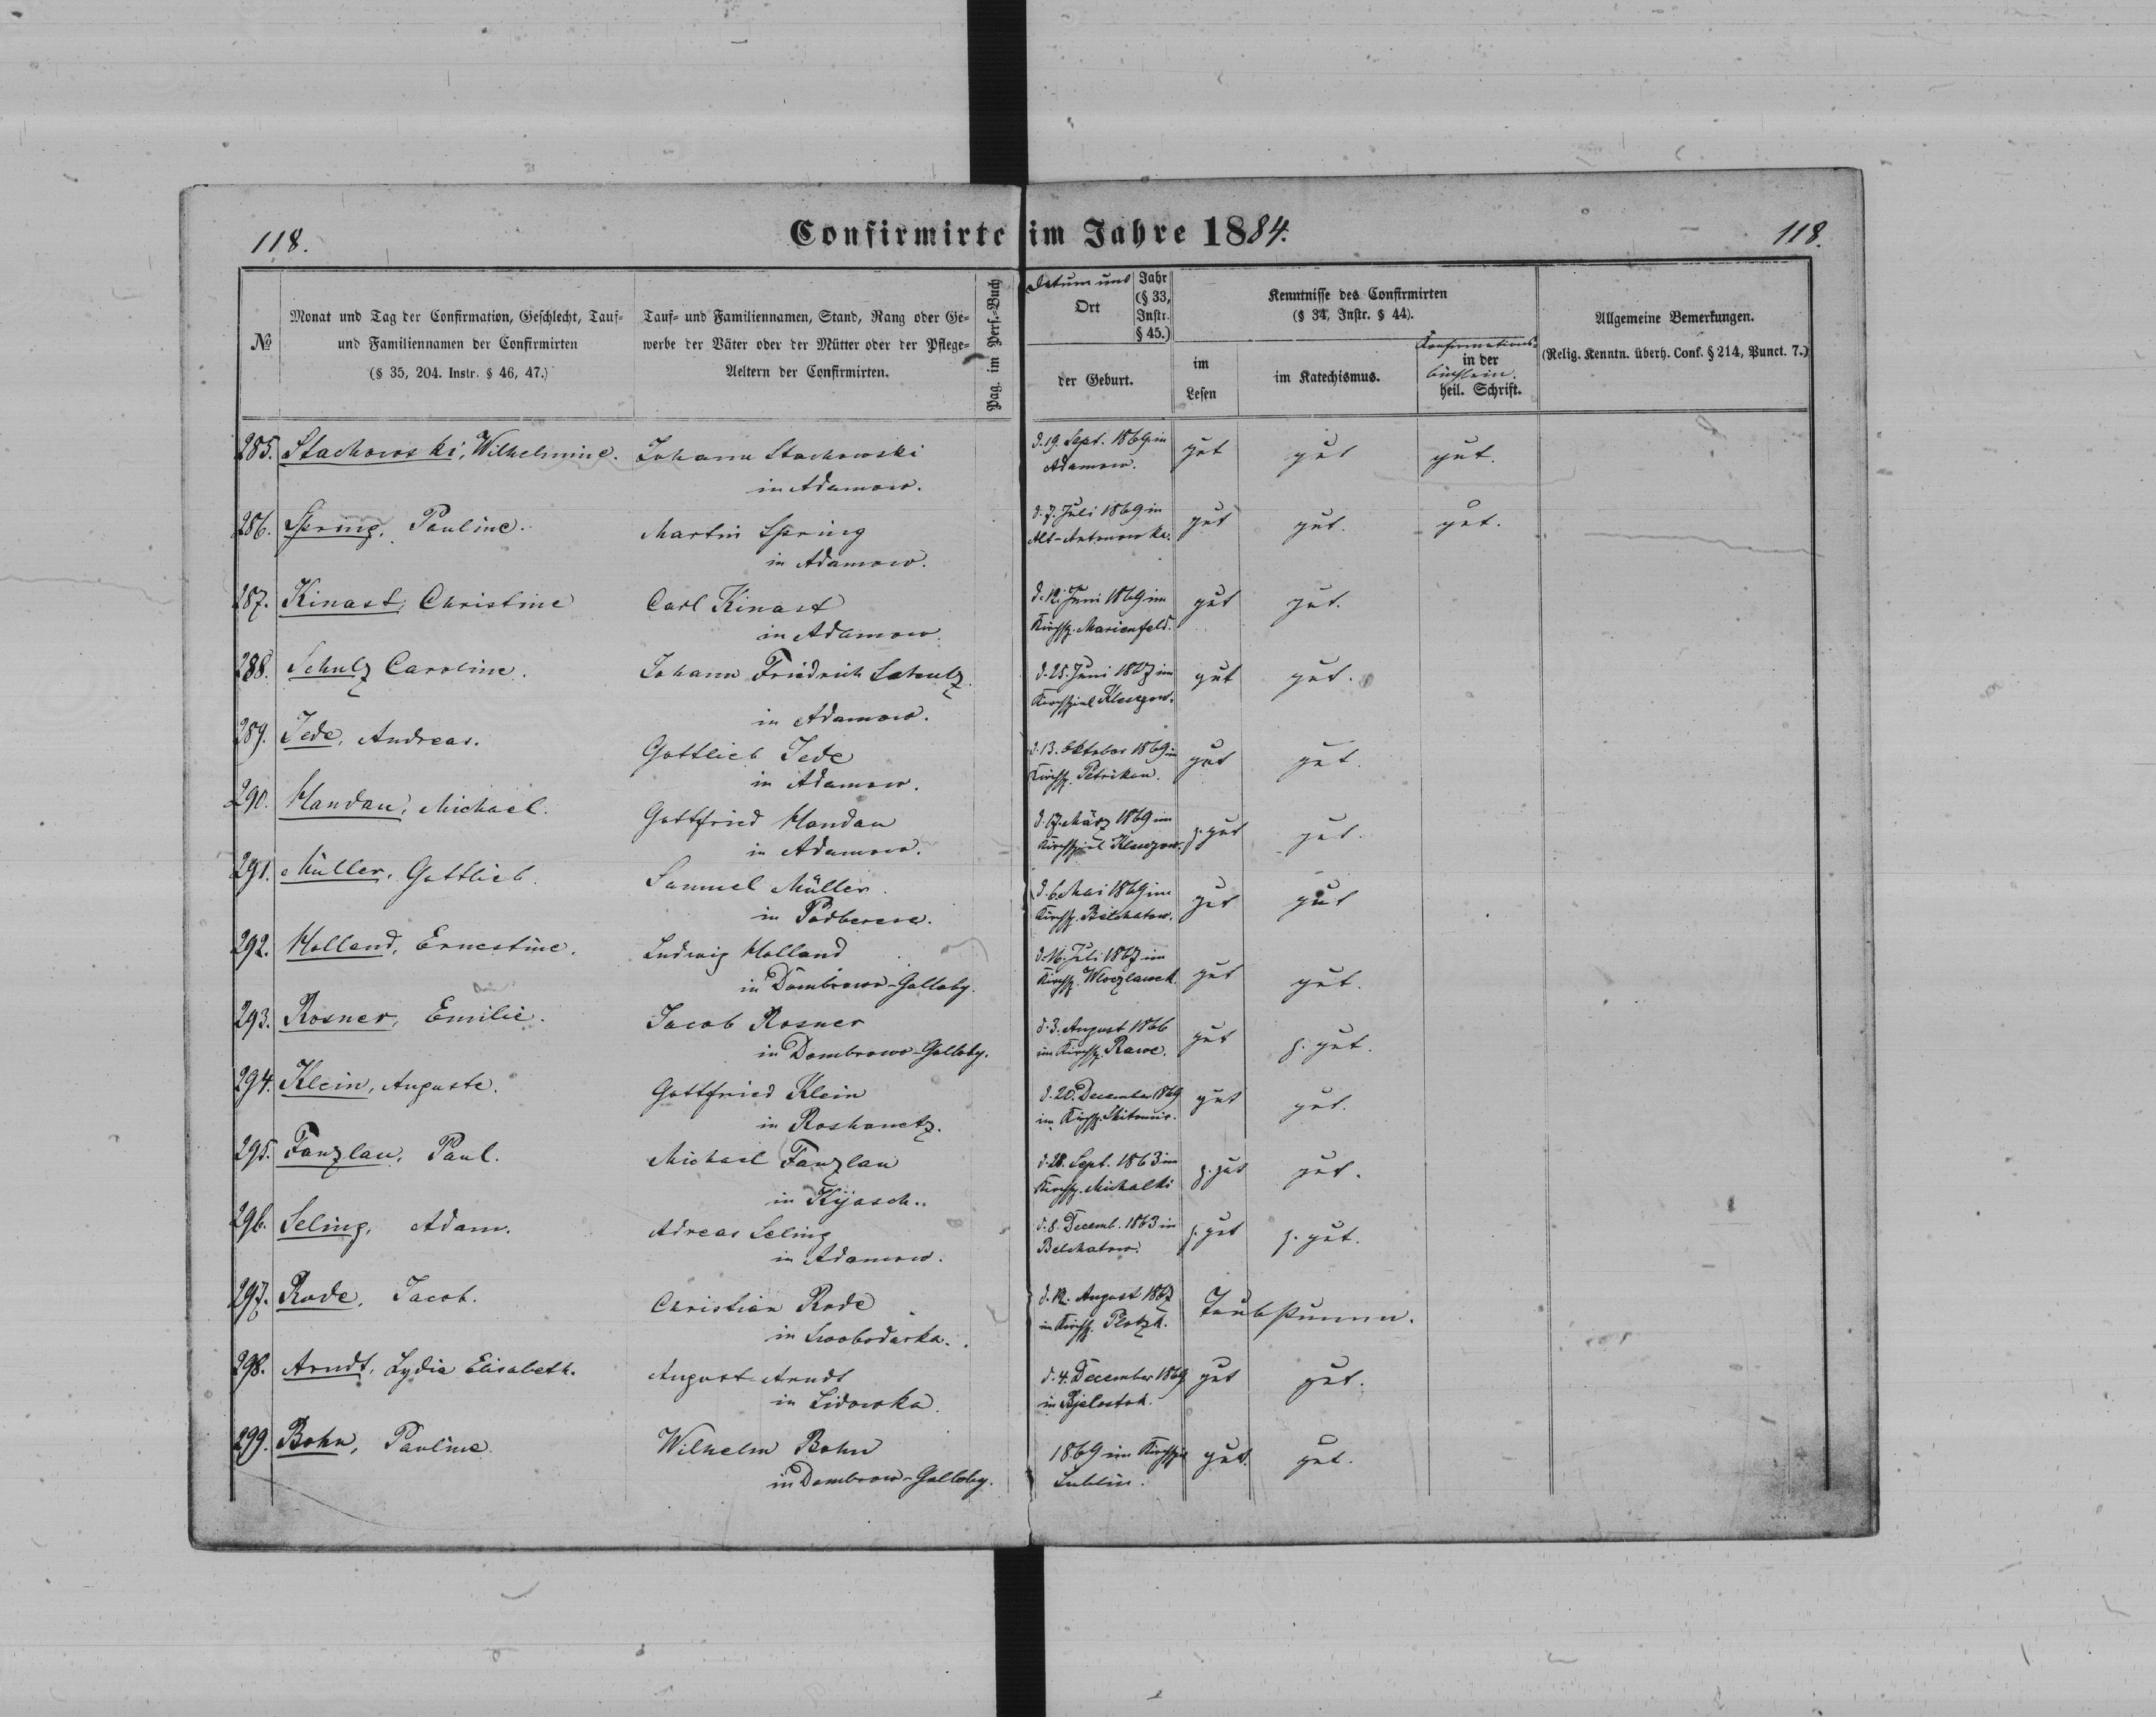 118.
Confirmirte im Jahre 1884.
118.
№
Monat und Tag der Confirmation, Geschlecht, Tauf-
und Familiennamen der Confirmirten
(§ 35, 204. Instr. § 46, 47.)
Tauf- und Familiennamen, Stand, Rang oder Ge-
werbe der Väter oder der Mütter oder der Pflege-
Aeltern der Confirmirten.
Pag. im Pers.-Buch
Datum und
Ort
Jahr
(§ 33,
Instr.
§ 45.)
der Geburt.
Kenntnisse des Confirmirten
(§ 34, Instr. § 44).
im
Lesen
im Katechismus.
Confirmations-
in der
büchlein.
heil. Schrift.
Allgemeine Bemerkungen.
(Relig. Kenntn. überh. Conf. § 214, Punct. 7.)
285. Stachowski, Wilhelmine. Johann Stachowski d. 19. Sept. 1869 in gut gut gut.
in Adamow. Adamow.
286. Spring, Pauline. Martin Spring d. 7. Juli 1869 in gut gut. gut.
in Adamow. Alt-Antonowka.
287. Kinast, Christine Carl Kinast d. 12. Juni 1869 im gut gut.
in Adamow. Kirchsp. Marienfeld.
288. Schulz Caroline. Johann Friedrich Schulz d. 25. Juni 1867 im gut gut.
in Adamow. Kirchspiel Kleszczow.
289. Jede, Andreas. Gottlieb Jede d. 13. Oktober 1869 im gut gut.
in Adamow. Kirchsp. Petrikau.
290. Handau, Michael. Gottfried Handau d. 17. März 1869 im z. gut gut.
in Adamow. Kirchspiel
291. Müller, Gottlieb. Samuel Müller d. 6. Mai 1869 im gut gut
in Podberese. Kirchsp. Belchatow.
292. Holland, Ernestine. Ludwig Holland d. 16. Juli 1867 im gut gut.
in Dombrowo-Golloby. Kirchsp. Wloczlawek.
293. Rosner, Emilie. Jacob Rosner d. 3. August 1866 gut z. gut.
in Dombrowo-Golloby. im Kirchsp. Rawe.
294. Klein, Auguste. Gottfried Klein d. 20. December 1869 gut gut.
in Roshanetz. im Kirchsp. Shitomir.
295. Fanzlau, Paul. Michael Fanzlau d. 28. Sept. 1863 im z. gut gut.
in Kijasch. Kirchsp. Michalki
296. Seling, Adam. Adreas Seling d. 8. Decemb. 1863 in z. gut z. gut.
in Adamow. Belchatow.
297. Rode, Jacob. Christian Rode d. 12. August 1867 Taubstumm.
in Swobodarka. im Kirchsp. Plotzk.
298. Arndt, Lydia Elisabeth. August Arndt d. 4. December 1869 gut gut.
in Lidowka. in Bjelostok.
299. Bohn, Pauline. Wilhelm Bohn 1869 im Kirchspiel gut. gut.
in Dombrow-Golloby. Lublin.